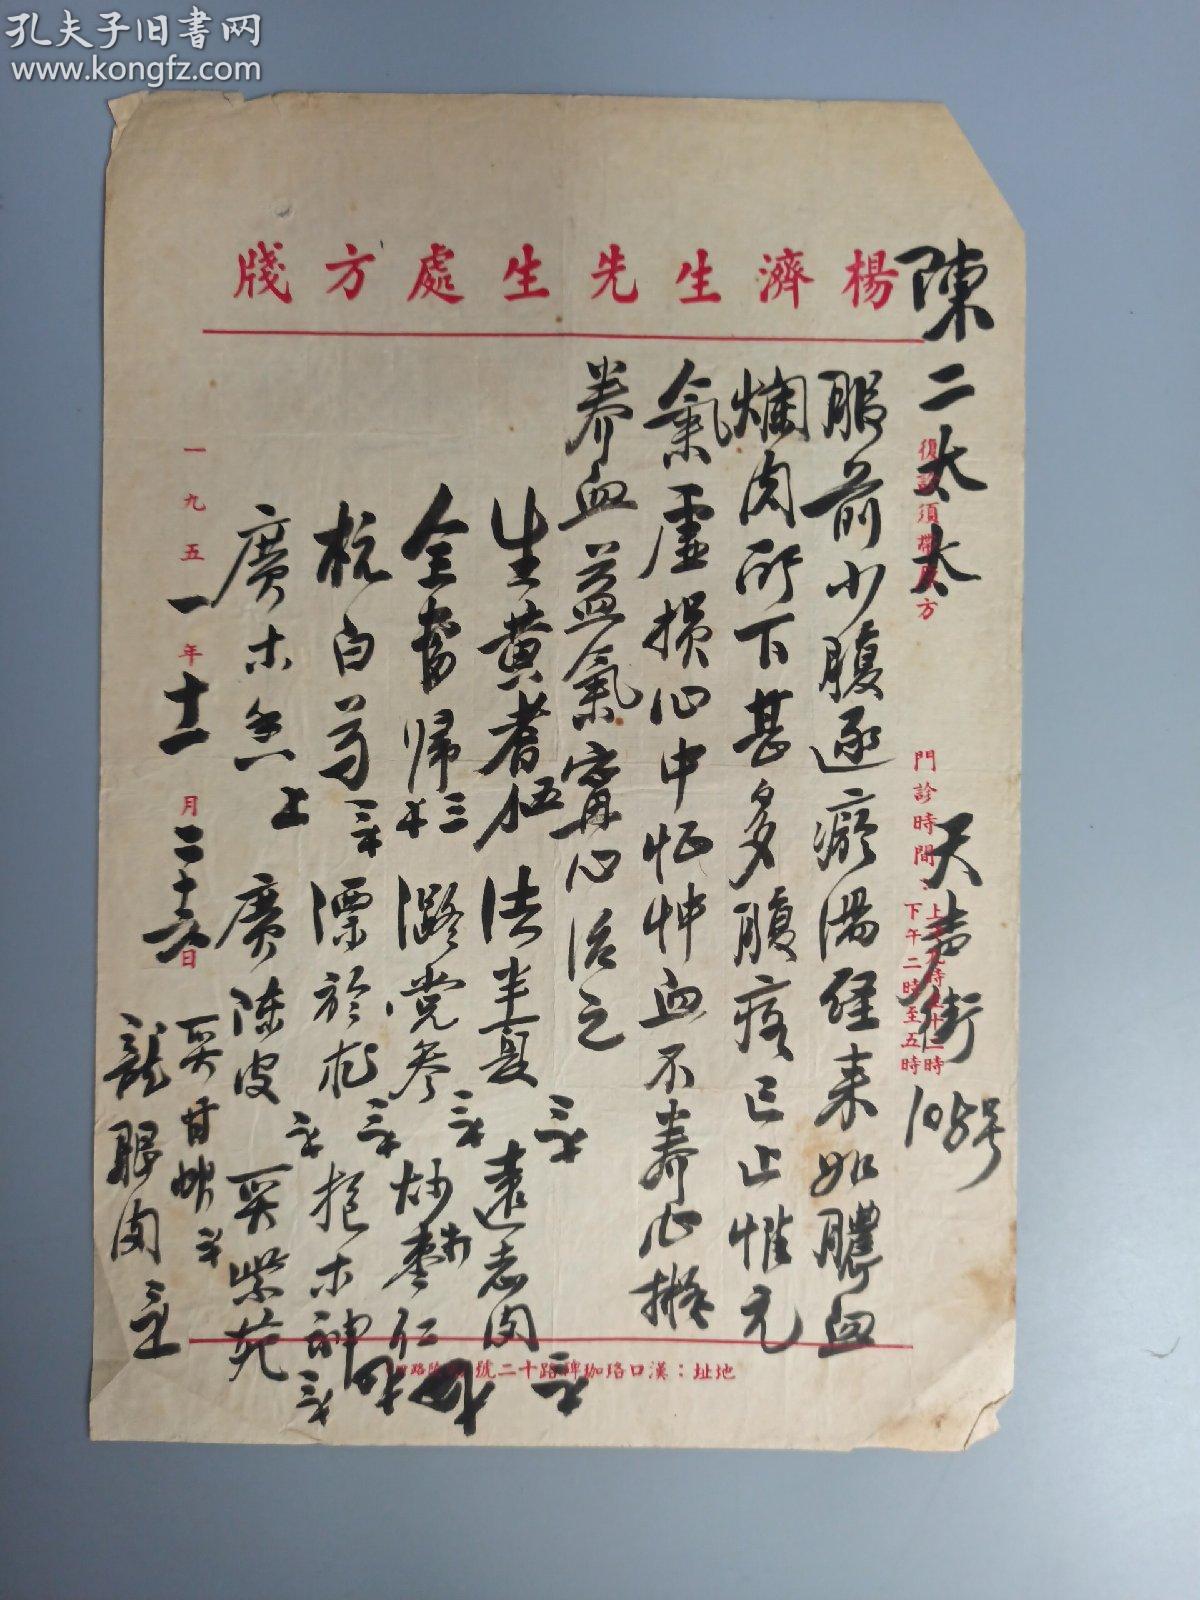 孔夫子旧書网
www.kongfz.com
楊濟生先生處方牋
陳二太太
天声街108号
復診須帶原方
門診時間：上午九時至十二時
下午二時至五時
服前小腹逐瘀湯經来如膿血
爛肉所下甚多腹疼已止惟元
氣虛損心中怔忡血不養心擬
养血益氣寗心治之
生黄耆伍 法半夏三 遠志肉
全當归三 潞党参三 炒枣仁
杭白芍三 漂於朮三 抱木神三
廣木香 廣陳皮 炙紫苑
炙甘草
龍眼肉
一九五一年十一月二十六日
地址：漢口珞珈碑路十二號